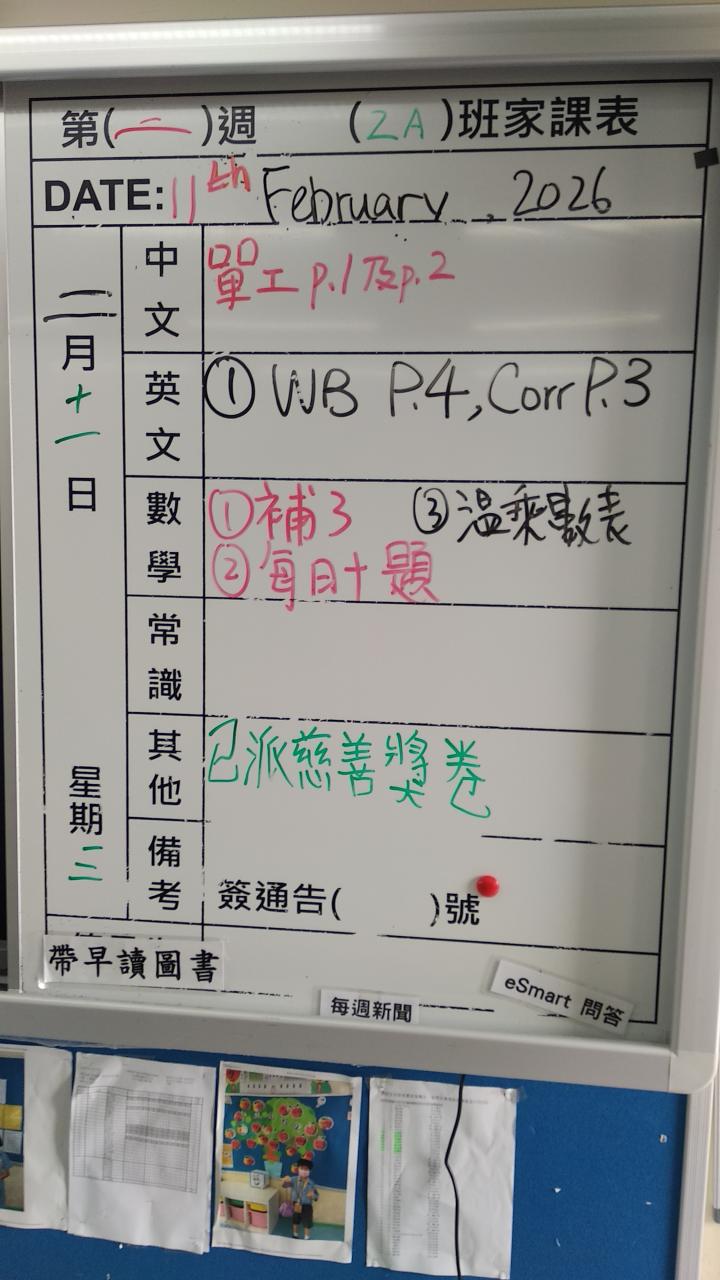 第(二)週 (2A)班家課表
DATE: 11th February, 2026
二月十一日 星期三
中文 單工 p.1及p.2
英文 ① WB P.4, Corr P.3
數學 ①補3 ③溫乘數表
②每日十題
常識
其他 已派慈善獎卷
備考 簽通告( )號
帶早讀圖書
每週新聞
eSmart 問答